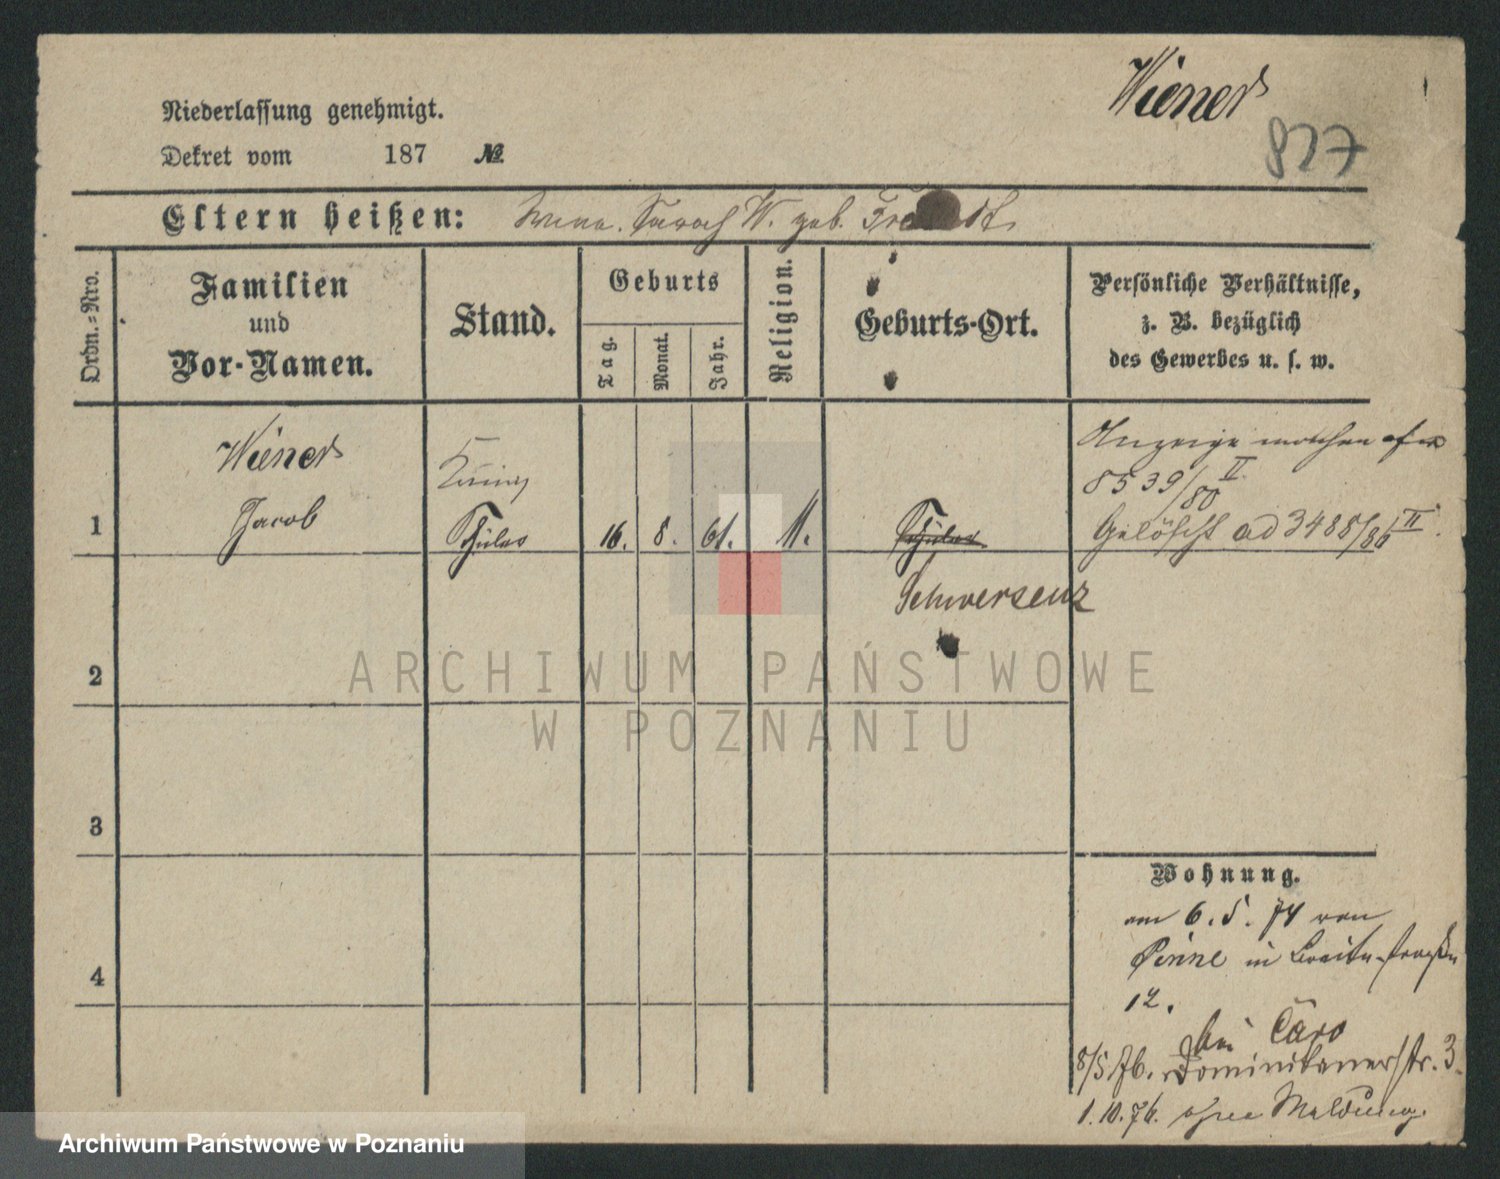 Wiener
827
Niederlassung genehmigt.
Dekret vom 187 №
Eltern heißen: Sarah W. geb.
Ordn.-Nro.
Familien
und
Vor-Namen.
Stand.
Geburts
Tag.
Monat.
Jahr.
Religion.
Geburts-Ort.
Persönliche Verhältnisse,
z. B. bezüglich
des Gewerbes u. s. w.
1
Wiener
Jacob
Schüler
16. 8. 61. M.
Schüler
Schwersenz
Anzeige
8539/80 II
Gelöscht ad 3488/86 II.
2
3
4
Wohnung.
am 6. 5. 74 von
Pinne in Breitestraße
12.
bei Caro
8/5 76. Dominikanerstr. 3.
1.10.76. ohne Meldung.
ARCHIWUM PAŃSTWOWE
W POZNANIU
Archiwum Państwowe w Poznaniu